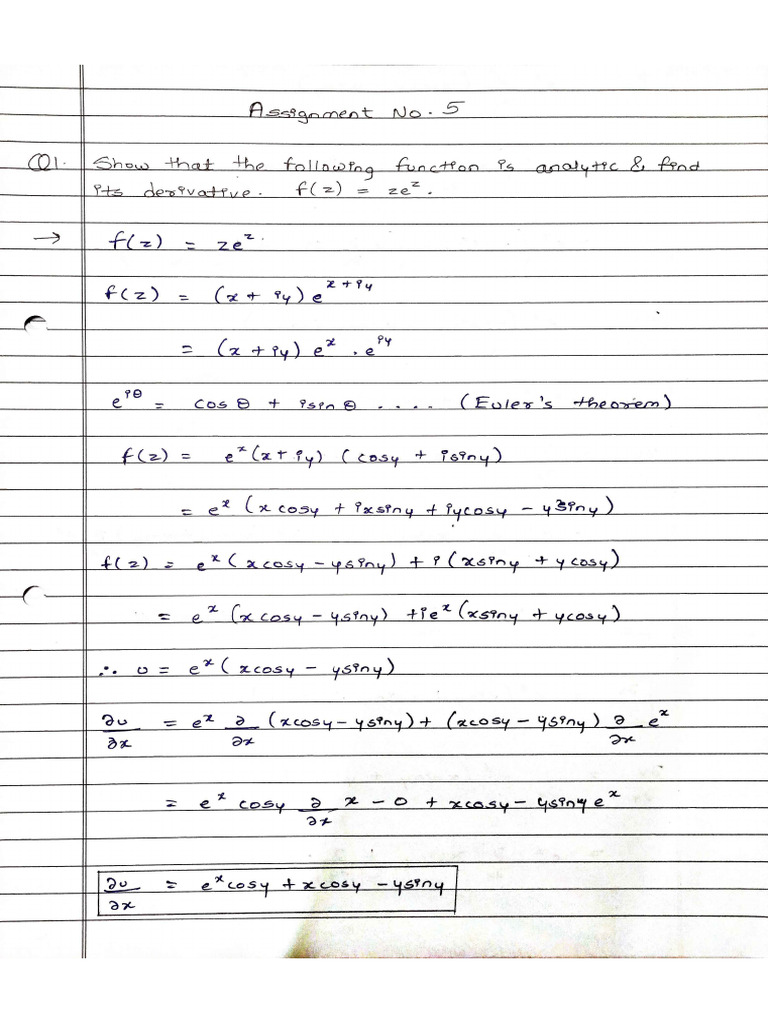 Assignment No. 5
Q1. Show that the following function is analytic & find
its derivative. f(z) = ze^z.
→ f(z) = ze^z.
f(z) = (x + iy) e^{x+iy}
= (x + iy) e^x . e^{iy}
e^{iθ} = cos θ + isin θ .... (Euler's theorem)
f(z) = e^x (x + iy) (cosy + isiny)
= e^x (x cosy + ixsiny + iycosy - ysiny)
f(z) = e^x (xcosy - ysiny) + i (xsiny + ycosy)
= e^x (xcosy - ysiny) + ie^x (xsiny + ycosy)
∴ u = e^x (xcosy - ysiny)
∂u/∂x = e^x ∂/∂x (xcosy - ysiny) + (xcosy - ysiny) ∂/∂x e^x
= e^x cosy ∂/∂x x - 0 + xcosy - ysiny e^x
∂u/∂x = e^x cosy + xcosy - ysiny